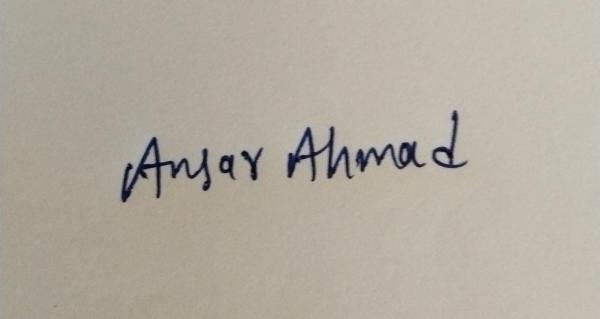 Ansar Ahmad